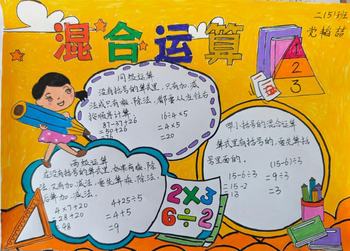 混合运算
二(5)班
1
2
3
同级运算
没有括号的算式里,只有加、减
法或只有乘、除法,都要从左往右
按顺序计算
87-37+26
=50+26
16÷4×5
=4×5
=20
两级运算
在没有括号的算式里,如果有乘、除
法,又有加、减法,要先算乘、除法,
后算加、减法.
4×7+20
=28+20
=48
4+25÷5
=4+5
=9
带小括号的混合运算
算式里有括号的,要先算括
号里面的.
(15-6)÷3
=9÷3
=3
2×3
6÷2